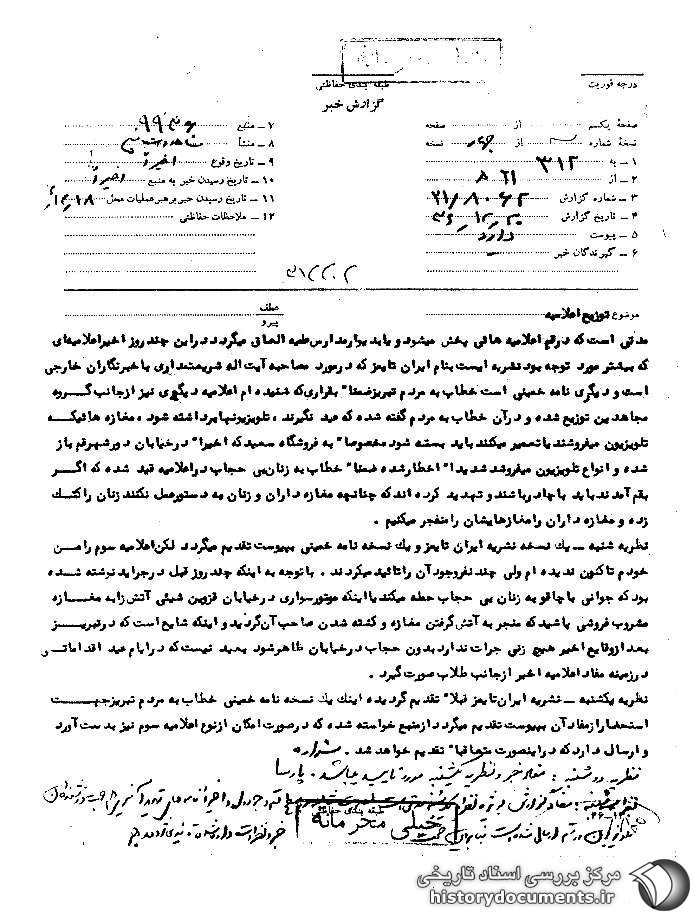 درجه فوریت
طبقه بندی حفاظتی
گزارش خبر
صفحهٔ یکم از صفحه
نسخهٔ شماره از نسخه
۱ – به ۳۱۲
۲ – از ۵۲۱
۳ – شماره گزارش
۴ – تاریخ گزارش
۵ – پیوست دارد
۶ – گیرندگان خبر
۷ – منبع
۸ – منشأ
۹ – تاریخ وقوع اخیراً
۱۰ – تاریخ رسیدن خبر به منبع اخیراً
۱۱ – تاریخ رسیدن خبر برهبر عملیات محل
۱۲ – ملاحظات حفاظتی
موضوع توزیع اعلامیه
عطف
پیرو
مدتی است که در قم اعلامیه هائی پخش میشود و یا بدیوار مدارس علمیه الصاق میگردد در این چند روز اخیر اعلامیه‌ای
که بیشتر مورد توجه بود نشریه ایست بنام ایران تایمز که در مورد مصاحبه آیت اله شریعتمداری با خبرنگاران خارجی
است و دیگری نامه خمینی است خطاب به مردم تبریز ضمنا" بقراری که شنیده ام اعلامیه دیگری نیز از جانب گروه
مجاهدین توزیع شده و در آن خطاب به مردم گفته شده که عید نگیرند ، تلویزیونها برداشته شود ، مغازه هائیکه
تلویزیون میفروشند یا تعمیر میکنند باید بسته شود مخصوصا" به فروشگاه سعید که اخیرا" در خیابان دورشهر قم باز
شده و انواع تلویزیون میفروشد شدیدا" اخطار شده ضمنا" خطاب به زنان بی حجاب در اعلامیه قید شده که اگر
بقم آمدند باید با چادر باشند و تهدید کرده اند که چنانچه مغازه داران و زنان به دستور عمل نکنند زنان را کتک
زده و مغازه داران را مغازهایشان را منفجر میکنیم .
نظریه شنبه – یک نسخه نشریه ایران تایمز و یک نسخه نامه خمینی بپیوست تقدیم میگردد لکن اعلامیه سوم را من
خودم تاکنون ندیده ام ولی چند نفر وجود آن را تائید میکردند . با توجه به اینکه چند روز قبل در جراید نوشته شده
بود که جوانی با چاقو به زنان بی حجاب حمله میکند یا اینکه موتورسواری در خیابان قزوین شیئی آتش زا به مغازه
مشروب فروشی پاشید که منجر به آتش گرفتن مغازه و کشته شدن صاحب آن گردید و اینکه شایع است که در تبریز
بعد از وقایع اخیر هیچ زنی جرات ندارد بدون حجاب در خیابان ظاهر شود بعید نیست که در ایام عید اقداماتی
در زمینه مفاد اعلامیه اخیر از جانب طلاب صورت گیرد .
نظریه یکشنبه – نشریه ایران تایمز قبلا" تقدیم گردیده اینک یک نسخه نامه خمینی خطاب به مردم تبریز جهت
استحضار از مفاد آن بپیوست تقدیم میگردد از منبع خواسته شده که در صورت امکان از نوع اعلامیه سوم نیز بدست آورد
و ارسال دارد که در اینصورت متعاقبا" تقدیم خواهد شد . شراره
نظریه دوشنبه : مفاد خبر و نظریه یکشنبه مورد تایید میباشد . پارسا
طبقه بندی حفاظتی
خیلی محرمانه
مرکز بررسی اسناد تاریخی
historydocuments.ir